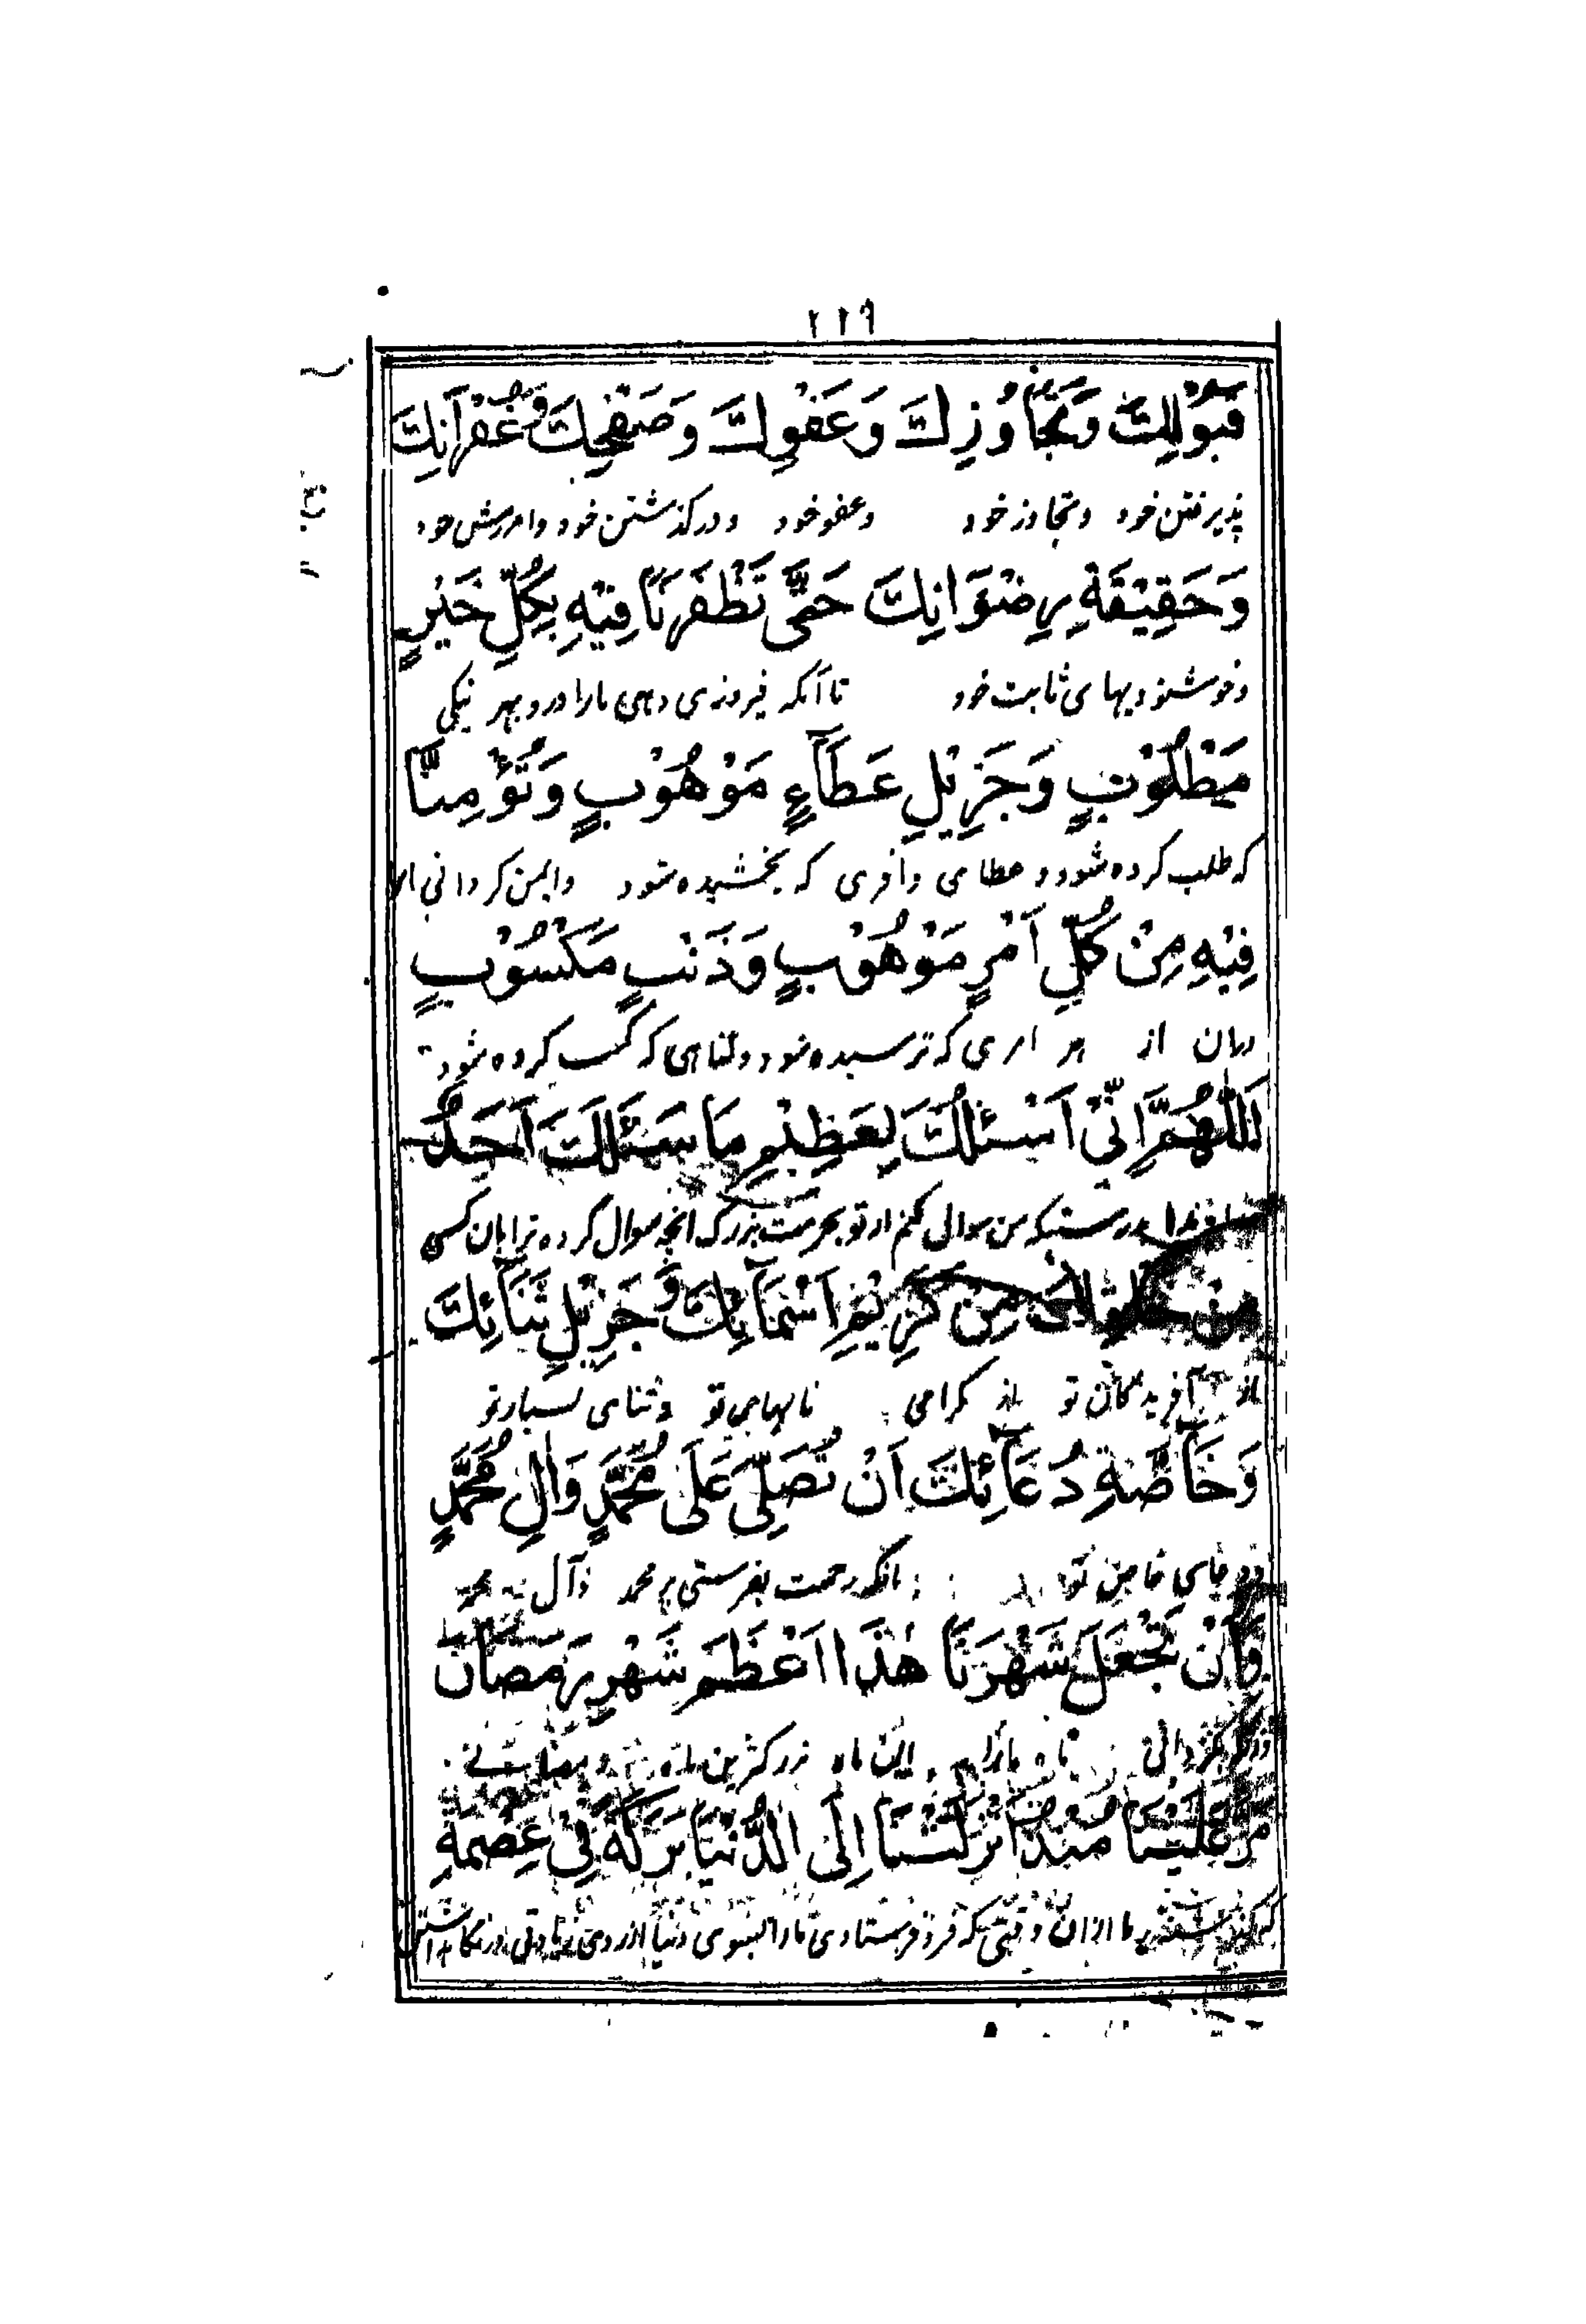 ۲۲۹
قَبُوْلِكَ وَتَجَاوُزِكَ وَعَفْوِكَ وَصَفْحِكَ وَغُفْرَانِكَ
پذیرفتن خود وتجاوز خود وعفو خود ودرگذشتن خود وامرزش خود
وَحَقِيْقَةِ رِضْوَانِكَ حَتّٰى تَظْفَرَنَا فِيْهِ بِكُلِّ خَيْرٍ
وخوشنودیهای ثابت خود تا آنکه فیروزی دهی مارا درو بهر نیکی
مَطْلُوْبٍ وَجَزِيْلِ عَطَآءٍ مَوْهُوْبٍ وَتُؤْمِنَّا
که طلب کرده شود و عطای وافری که بخشیده شود وایمن گردانی
فِيْهِ مِنْ كُلِّ اَمْرٍ مَوْهُوْبٍ وَذَنْبٍ مَكْسُوْبٍ
دران از هر امری که ترسیده شود وگناهی که کسب کرده شود
اَللّٰهُمَّ اِنِّىْ اَسْئَلُكَ بِعَظِيْمِ مَا سَئَلَكَ اَحَدٌ
بدرستیکه من سوال کنم از تو بحرمت بزرگ انچه سوال کرده ترا بان کسی
مِنْ مِنْ كَرِيْمِ اَسْمَآئِكَ وَجَزِيْلِ ثَنَآئِكَ
از آفریدگان تو از گرامی نامهای تو وثنای بسیار تو
وَخَآصَّةِ دُعَآئِكَ اَنْ تُصَلِّىَ عَلٰى مُحَمَّدٍ وَاٰلِ مُحَمَّدٍ
خاص تو انکه رحمت بفرستی بر محمد وآل محمد
وَاَنْ تَجْعَلَ شَهْرَنَا هٰذَا اَعْظَمَ شَهْرِ رَمَضَانَ
ماه مارا این ماه بزرگترین
مَرَّ عَلَيْنَا مُنْذُ اَنْزَلْتَنَا اِلَى الدُّنْيَا بَرَكَةً فِىْ عِصْمَةِ
ما ازان وقتی که فرو فرستادی مارا بسوی دنیا از روی